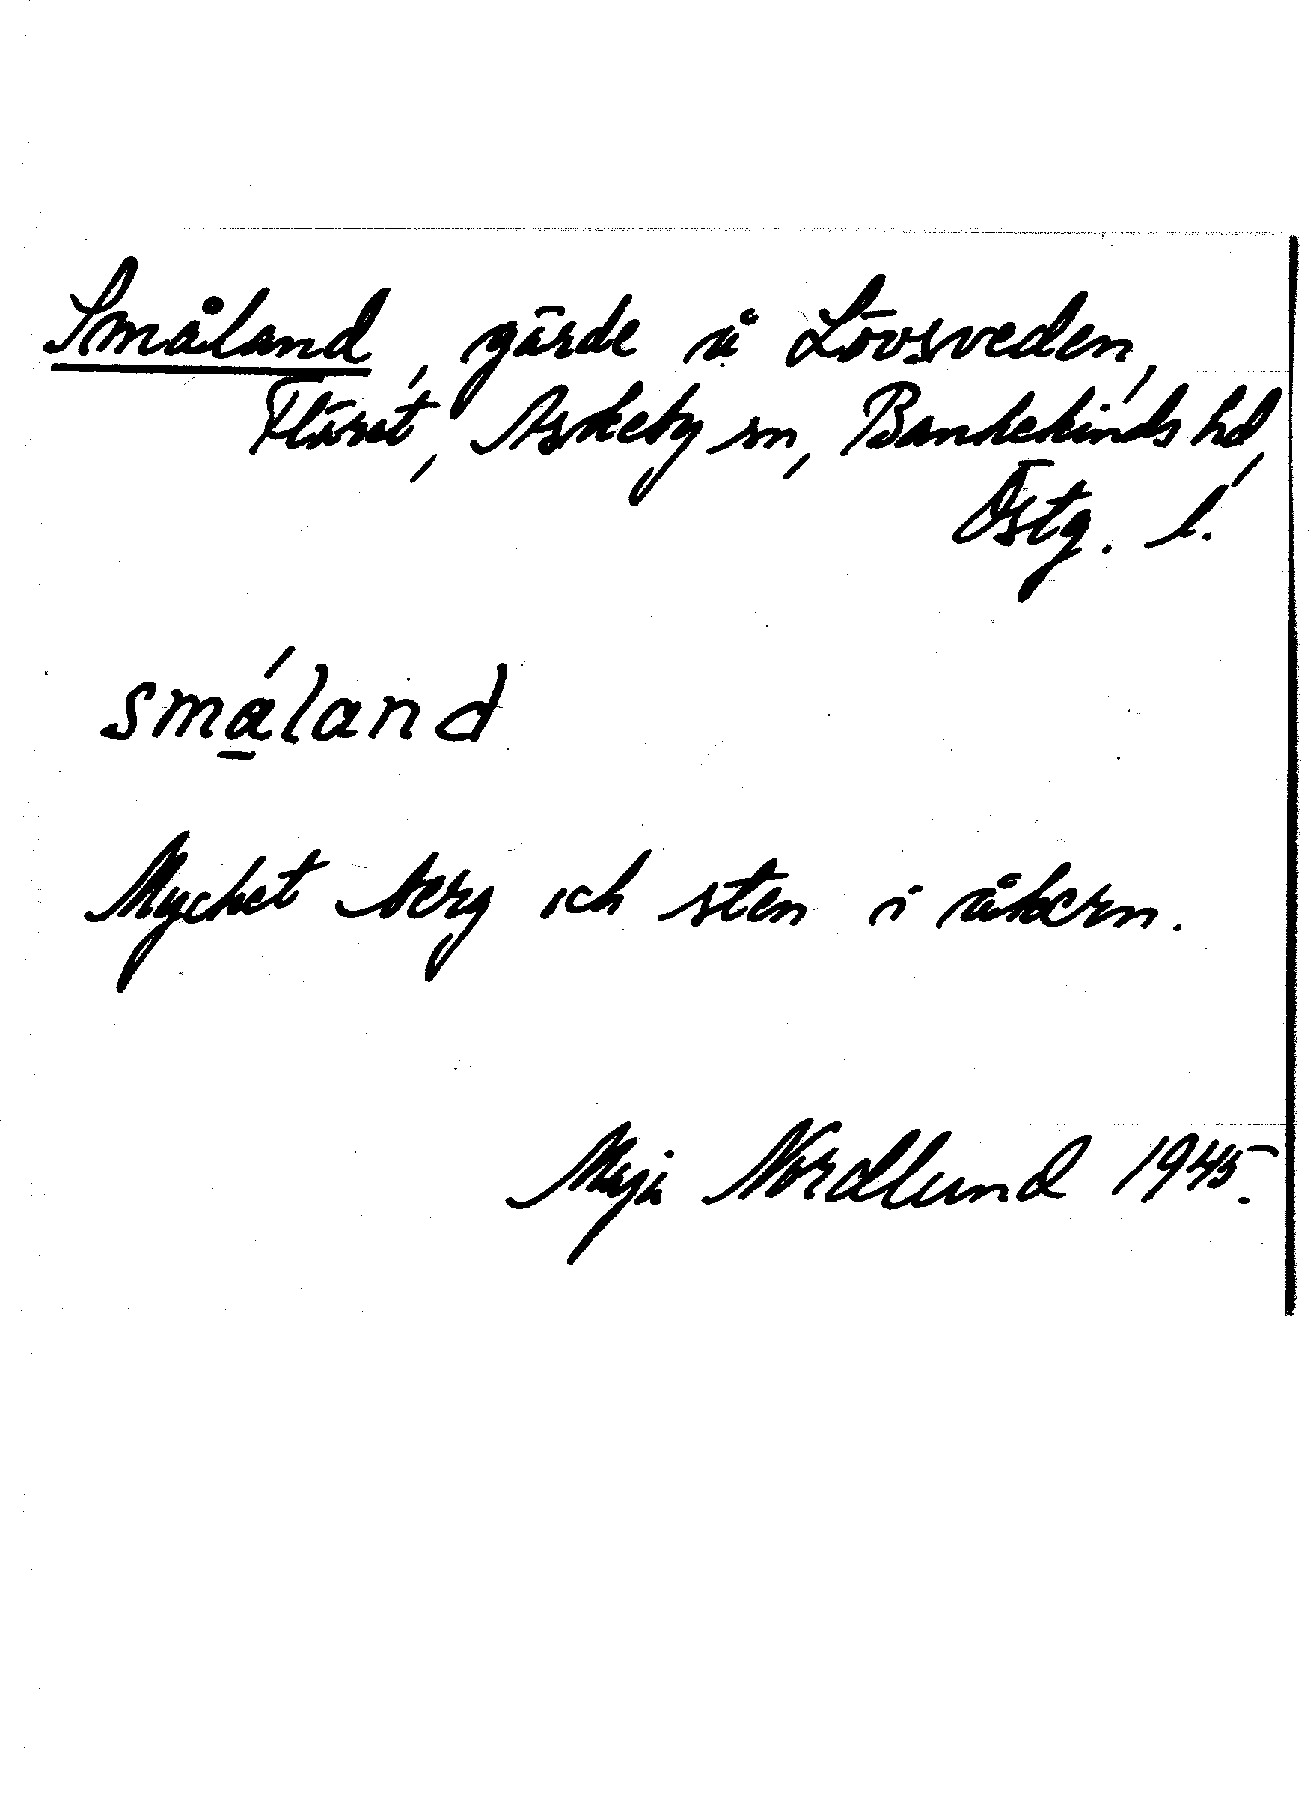 Småland, gärde å Lövsveden,
Askeby sn, Bankekinds hd,
Östg. l.
småland
Mycket berg och sten i åkern.
Maja Nordlund 1945.